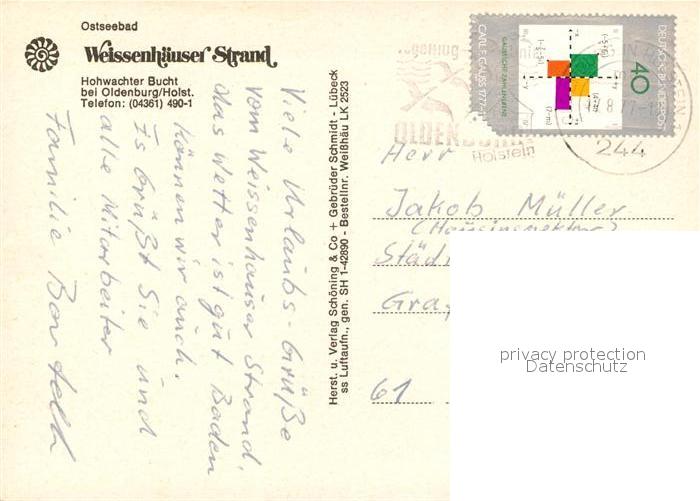 Ostseebad
Weissenhäuser Strand
Hohwachter Bucht
bei Oldenburg/Holst.
Telefon: (04361) 490-1
Viele Urlaubs-Grüße
vom Weissenhäuser Strand.
das Wetter ist gut Baden
können wir auch.
Es Grüßt Sie und
alle Mitarbeiter
Familie
Herst. u. Verlag Schöning & Co + Gebrüder Schmidt - Lübeck
ss Luftaufn., gen. SH 1-42890 - Bestellnr. Weißhäu LK 2523
CARL F. GAUSS 1777-1855
GAUSSSCHE ZAHLENEBENE
DEUTSCHE BUNDESPOST
40
OLDENBURG
Holstein
244
Herr
Jakob Müller
(Hausinspektor)
Städt
Graf
61
privacy protection
Datenschutz